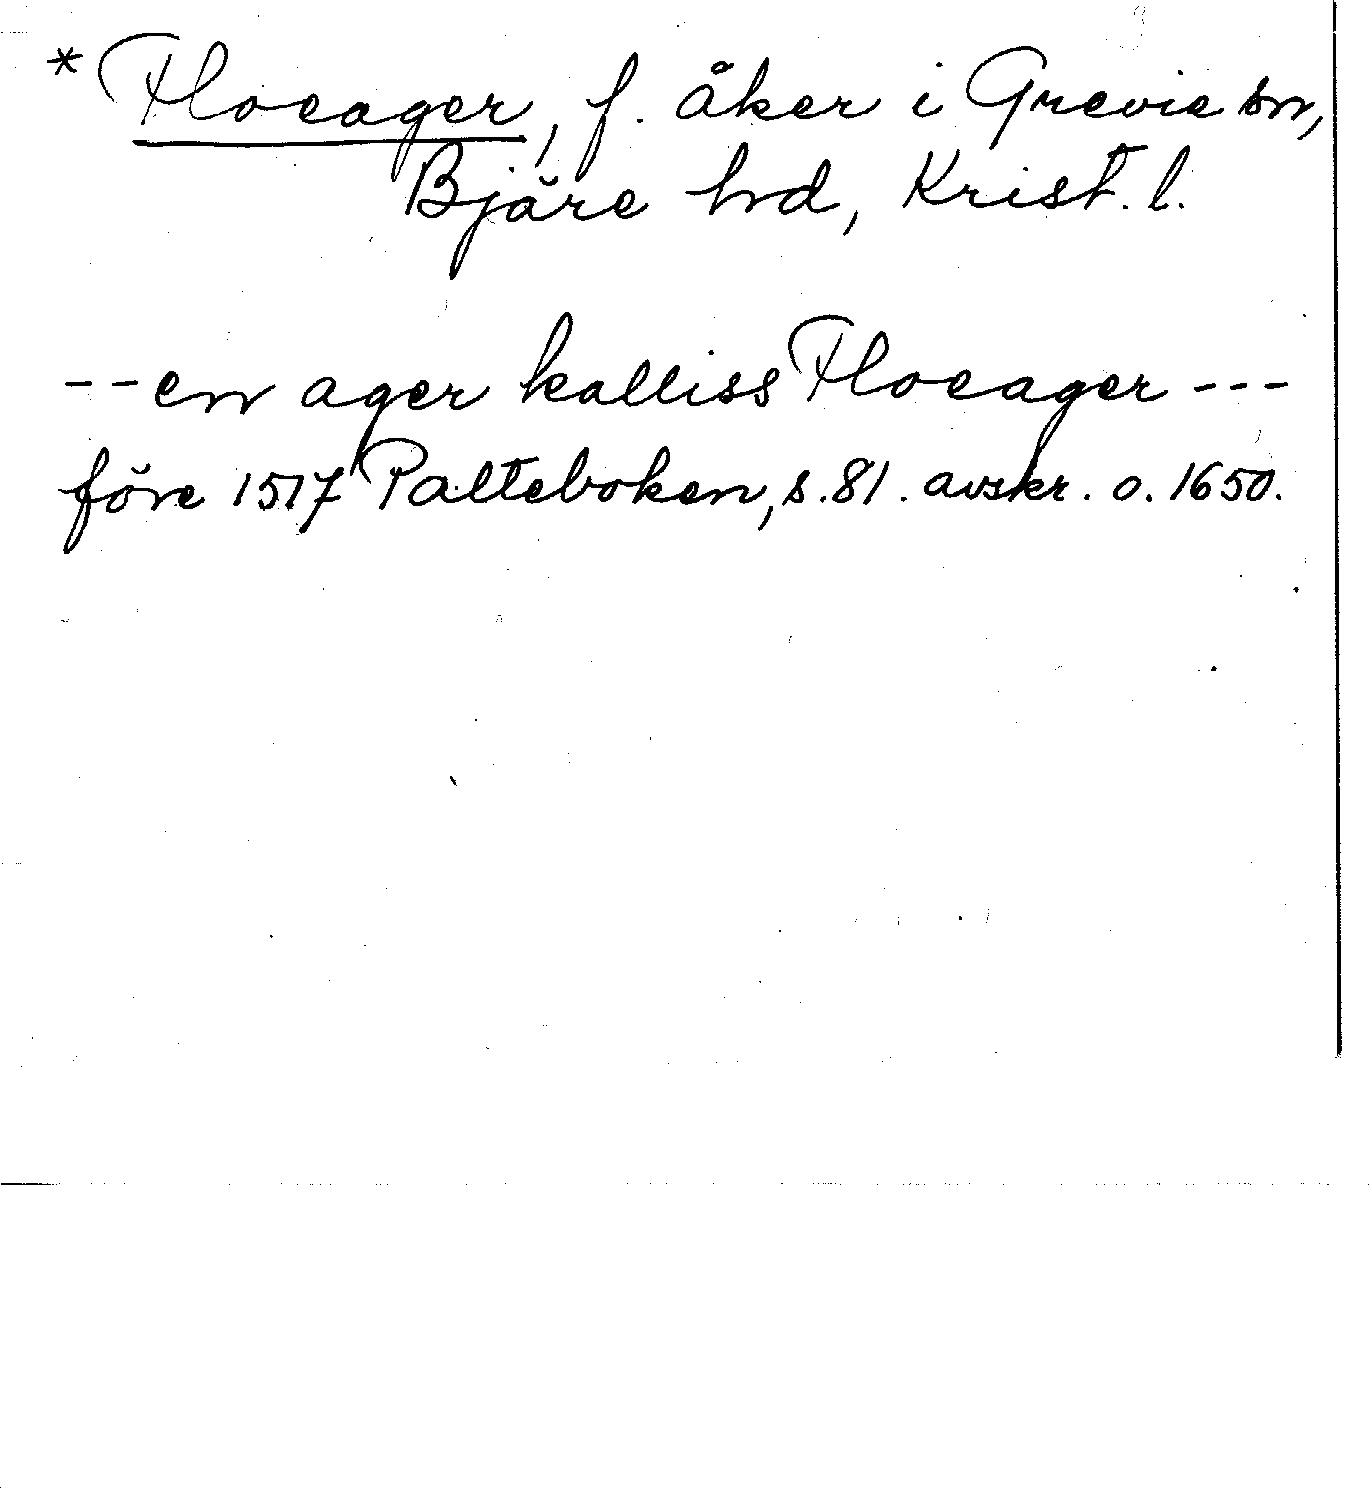 *Floeager, f. åker i Grevie sn,
Bjäre hd, Krist. l.
--en ager kalliss Floeager ---
före 1517 Palteboken, s. 81. avskr. o. 1650.